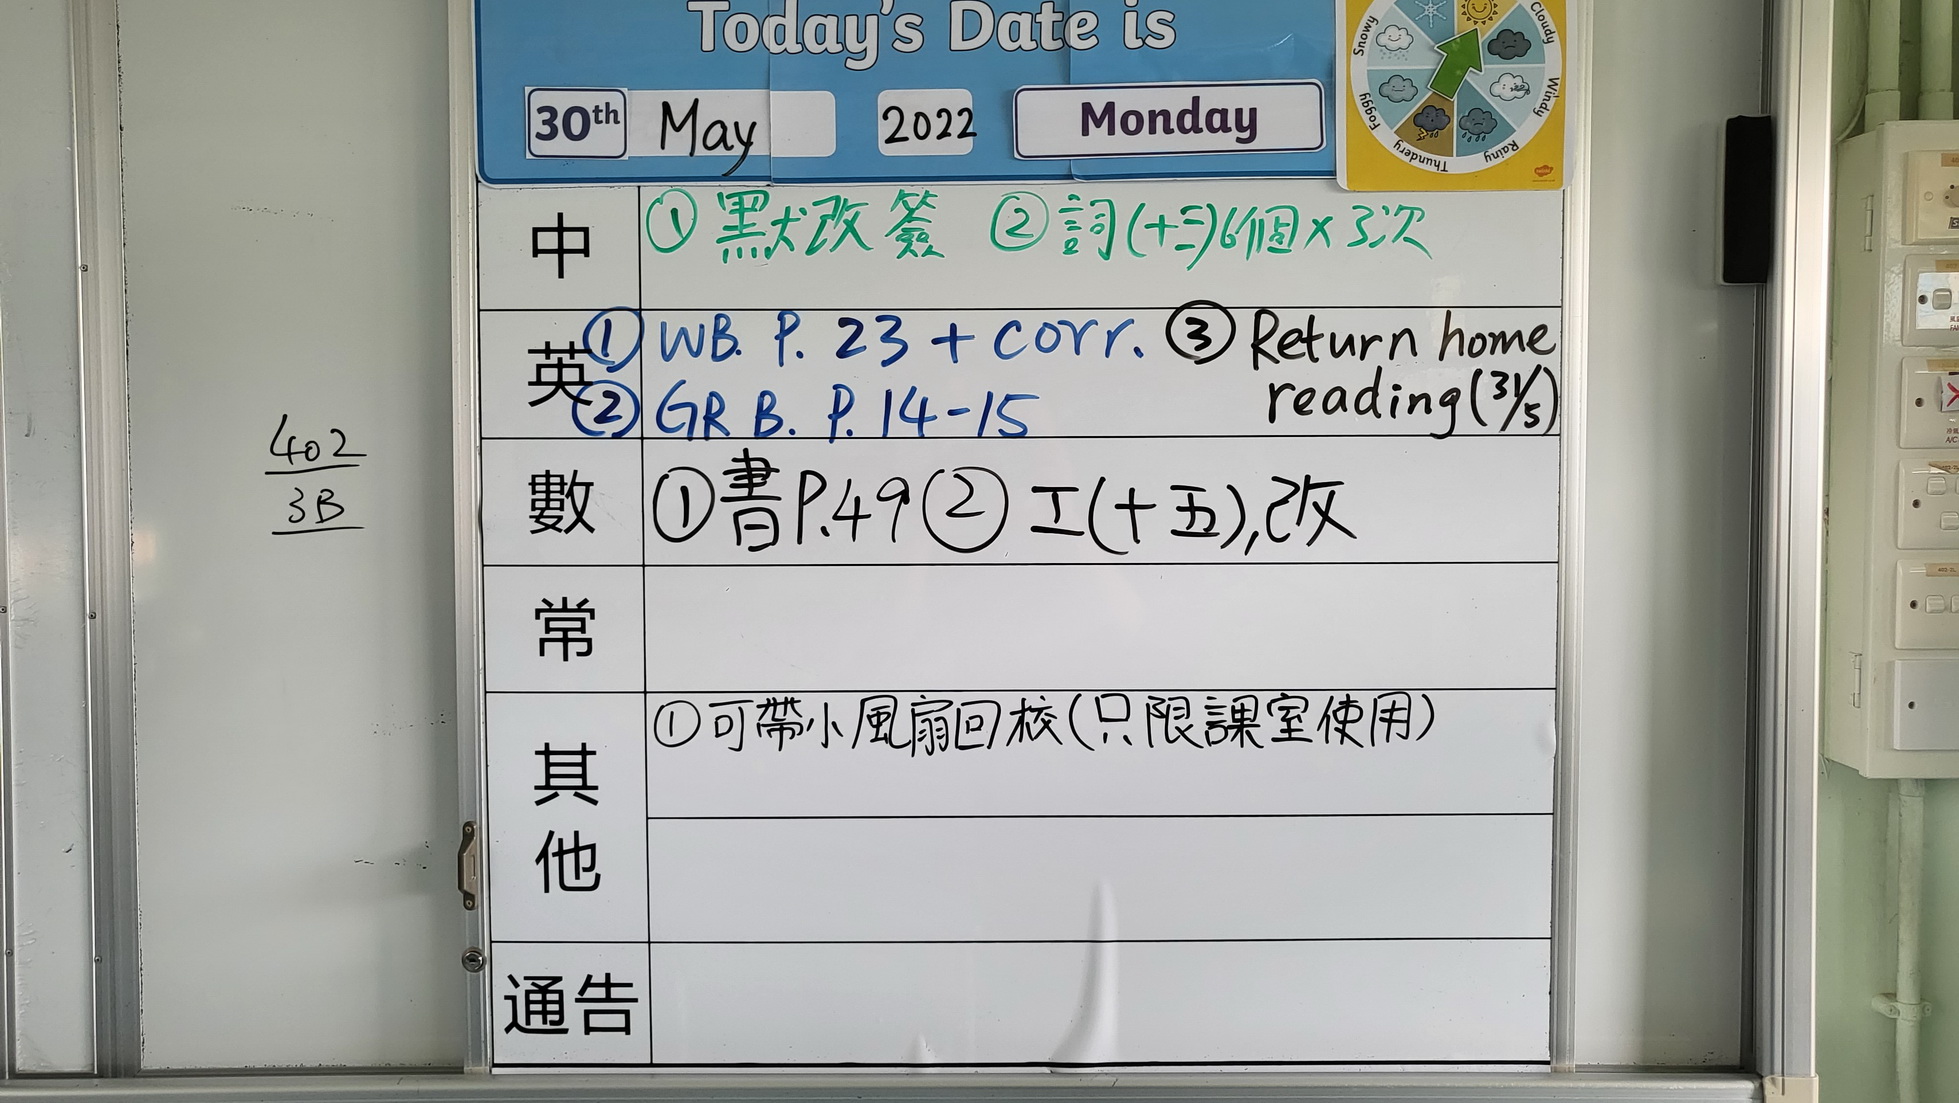 Today's Date is
30th May 2022 Monday
Snowy
Cloudy
Windy
Rainy
Thundery
Foggy
中 ①默改簽 ②詞(十三)6個×3次
英 ①WB. P. 23 + corr. ③Return home
②GR B. P. 14-15 reading (31/5)
數 ①書P.49 ②工(十五),改
常
其他 ①可帶小風扇回校(只限課室使用)
通告
402
3B